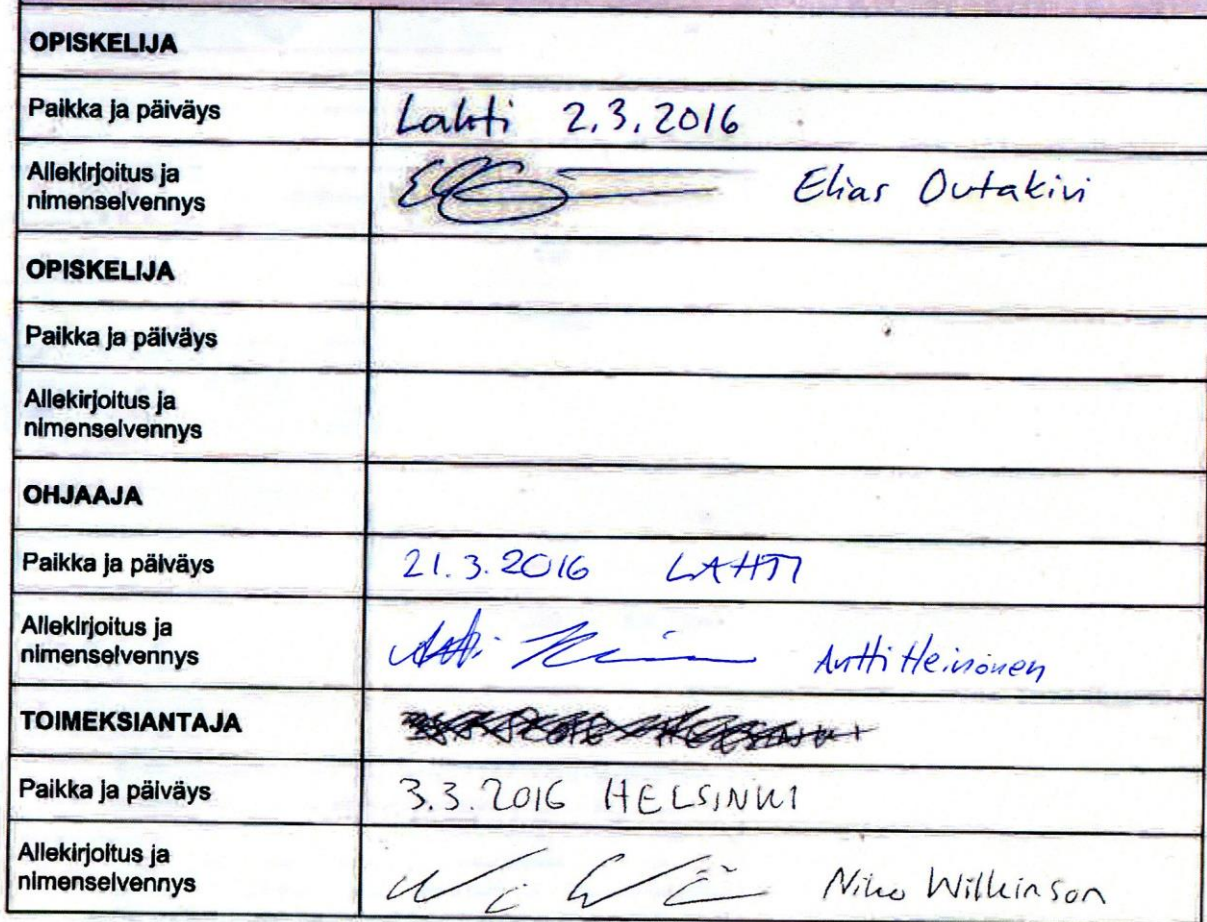 OPISKELIJA
Paikka ja päiväys Lahti 2.3.2016
Allekirjoitus ja
nimenselvennys Elias Outakivi
OPISKELIJA
Paikka ja päiväys
Allekirjoitus ja
nimenselvennys
OHJAAJA
Paikka ja päiväys 21.3.2016 LAHTI
Allekirjoitus ja
nimenselvennys Antti Heinonen
TOIMEKSIANTAJA
Paikka ja päiväys 3.3.2016 HELSINKI
Allekirjoitus ja
nimenselvennys Niko Wilkinson